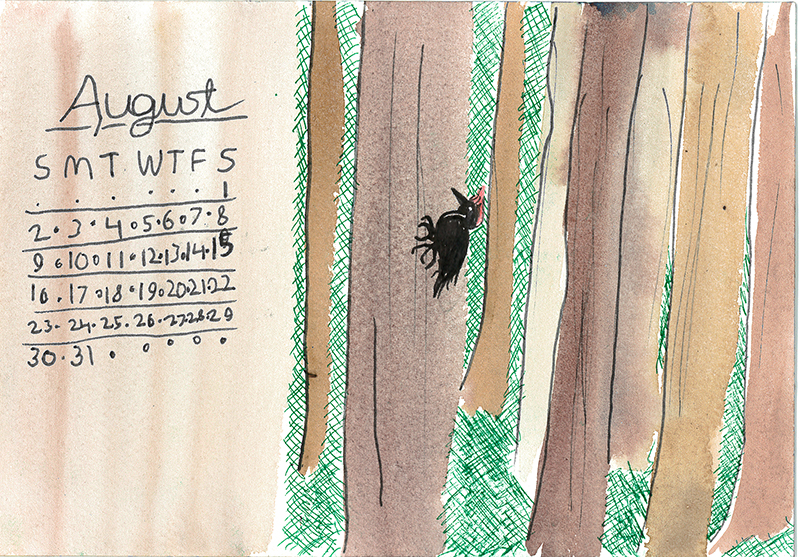 August
S M T W T F S
. . . . . . 1
2 • 3 • 4 • 5 • 6 • 7 • 8
9 • 10 • 11 • 12 • 13 • 14 • 15
16 • 17 • 18 • 19 • 20 • 21 • 22
23 • 24 • 25 • 26 • 27 • 28 • 29
30 • 31 • • • • •